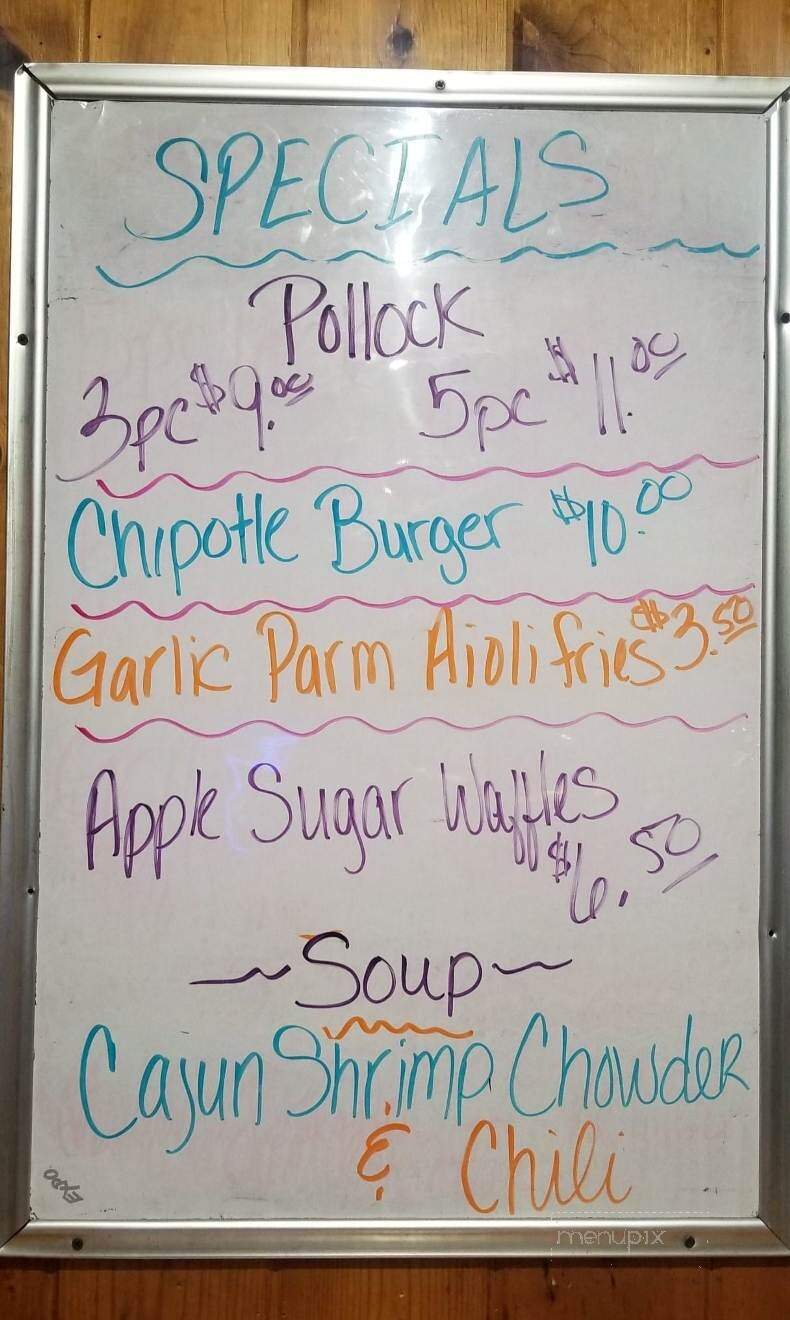 SPECIALS
Pollock
3pc $9.00 5pc $11.00
Chipotle Burger $10.00
Garlic Parm Aioli fries $3.50
Apple Sugar Waffles
$6.50
~Soup~
Cajun Shrimp Chowder
& Chili
EXPO
menupix